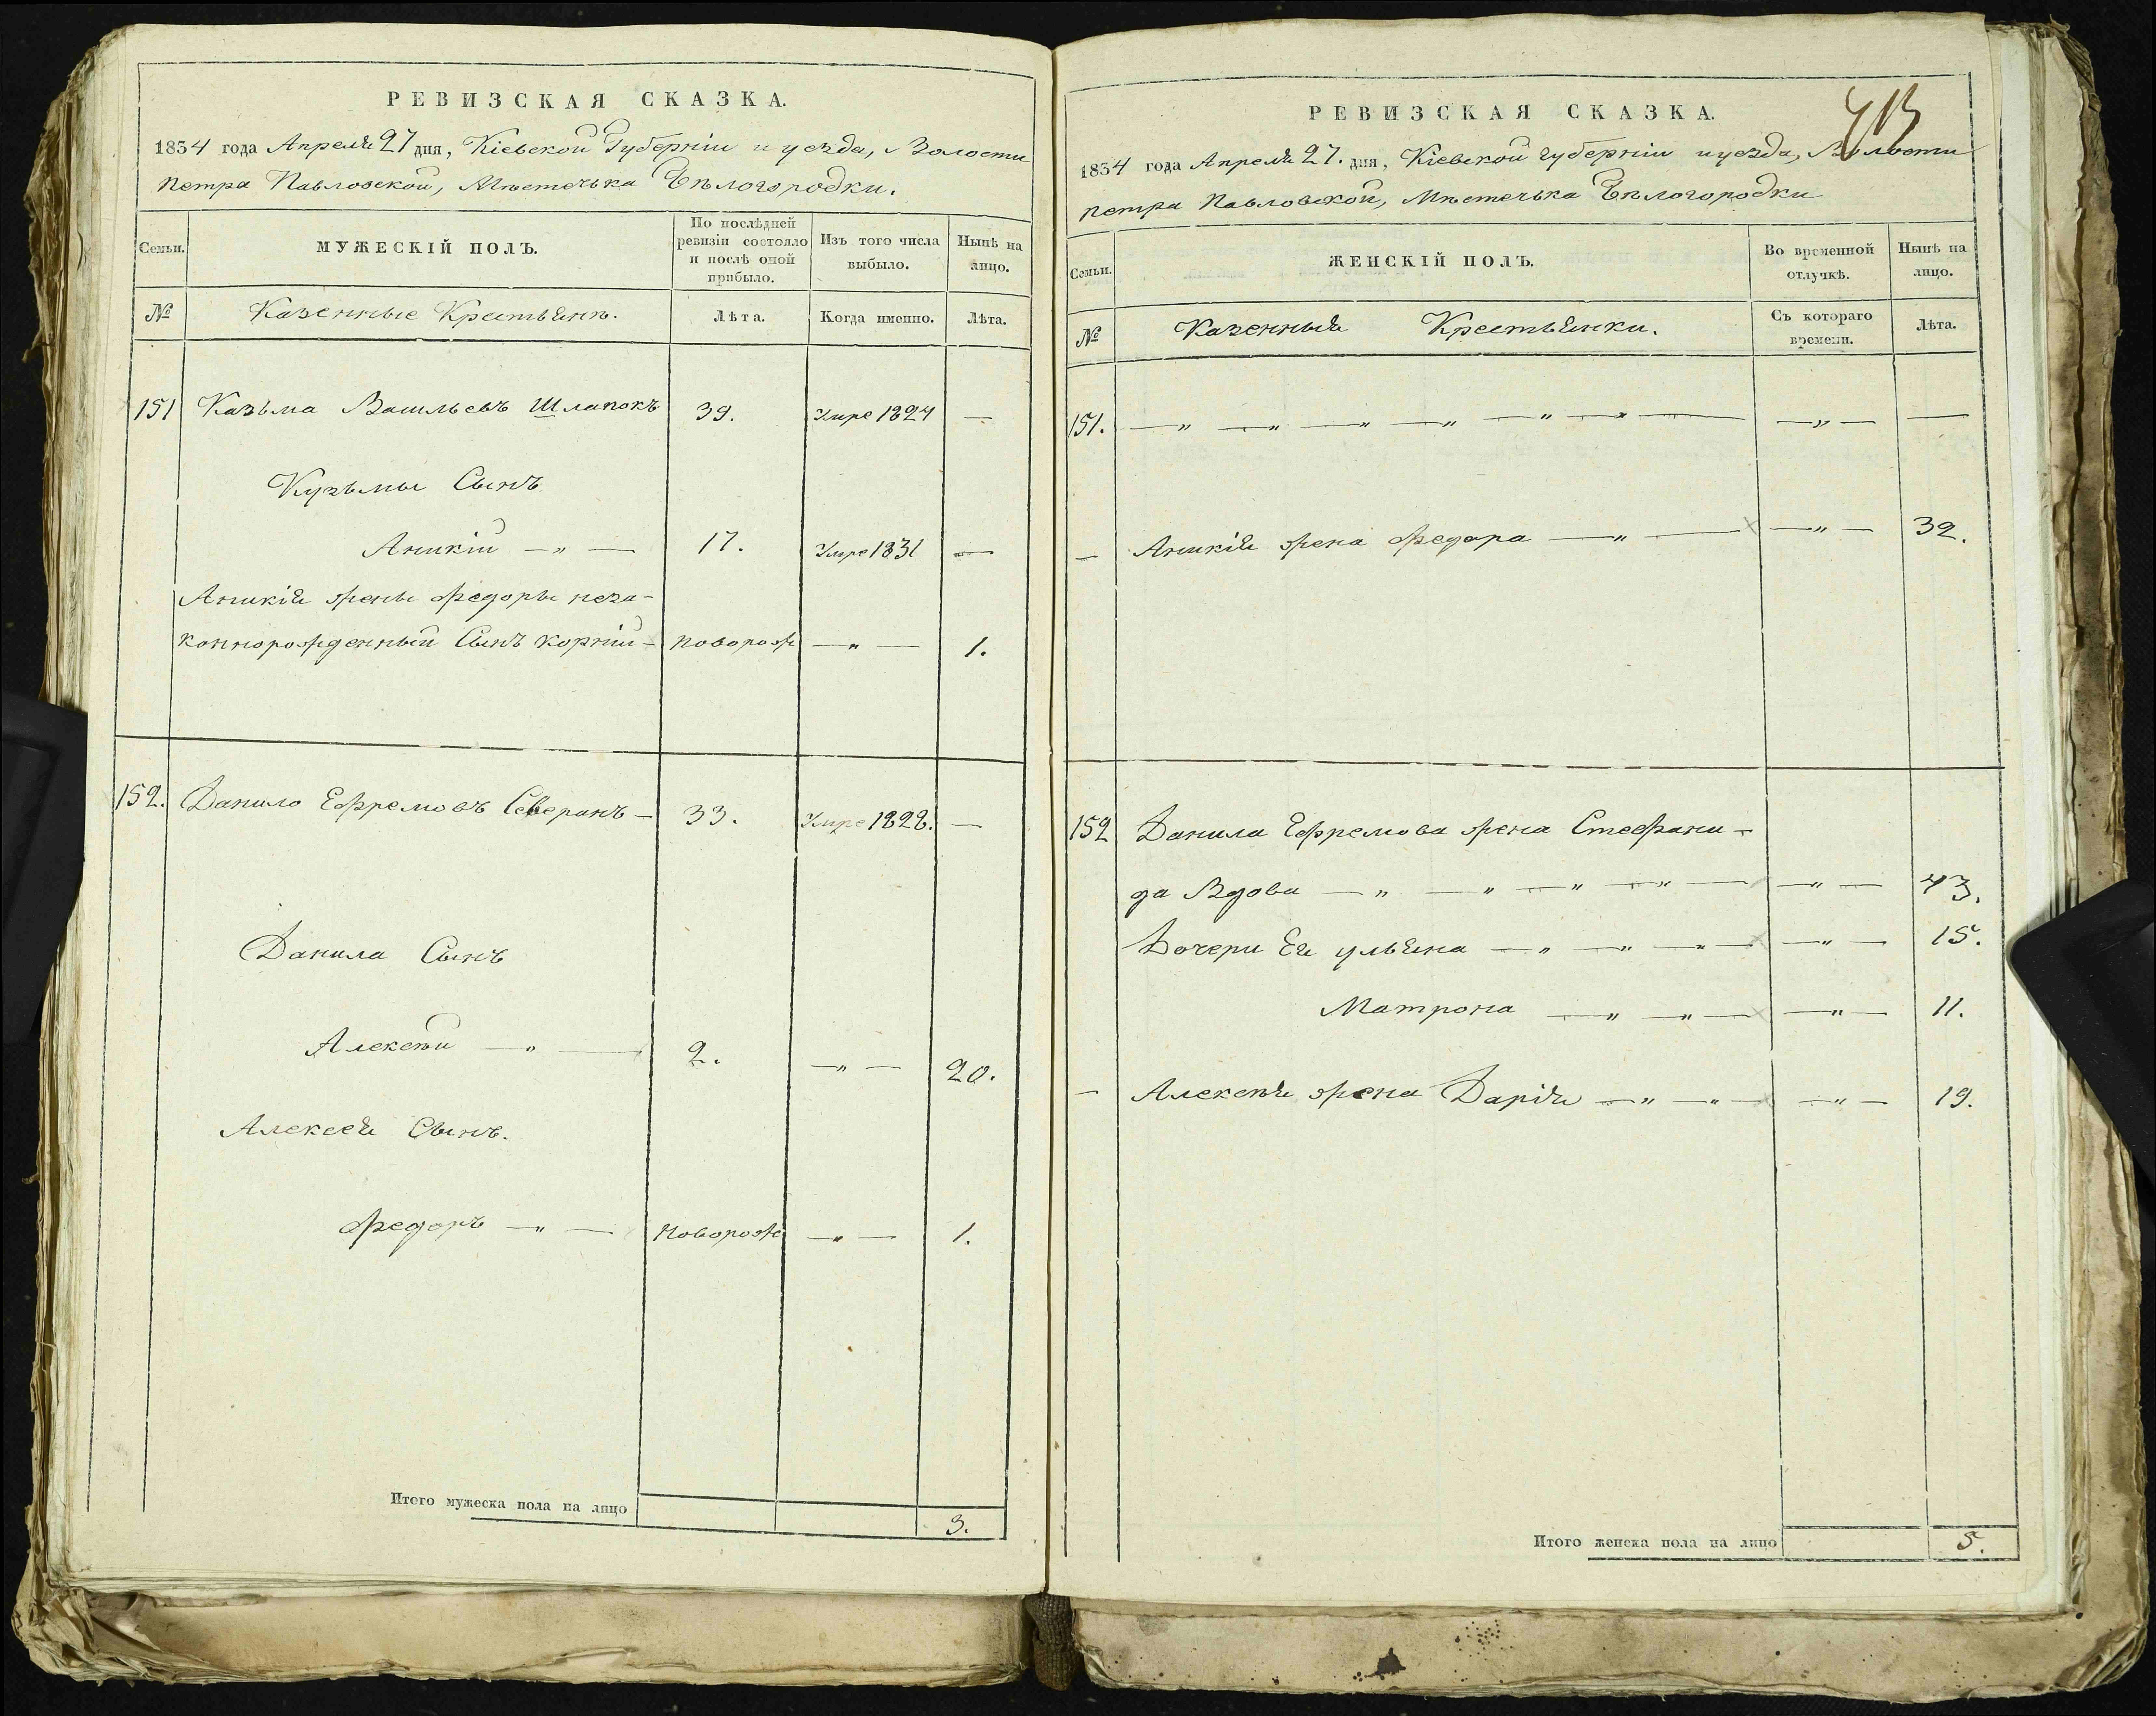 РЕВИЗСКАЯ СКАЗКА.
1834 года Апреля 27 дня, Кіевской Губерніи и уезда, Волости
петра Павловской, Мѣстечька Бѣлогородки.
Семьи.
МУЖЕСКІЙ ПОЛЪ.
По послѣдней ревизіи состояло и послѣ оной прибыло.
Изъ того числа выбыло.
Нынѣ на лицо.
№
Казенные Крестьяне.
Лѣта.
Когда именно.
Лѣта.
151 Казьма Васильевъ Шлапокъ 39. Умре 1824 —
Кузьмы Сынъ
Аникій — „ — 17. Умре 1831 —
Аникія жены Федоры неза-
коннорожденный Сынъ корній — новорож — „ — 1.
152. Данило Ефремовъ Северанъ — 33. Умре 1828. —
Данила Сынъ
Алексѣй — „ — 2. — „ — 20.
Алексея Сынъ.
Федоръ — „ — Новорож — „ — 1.
Итого мужеска пола на лицо 3.
413
РЕВИЗСКАЯ СКАЗКА.
1834 года Апреля 27. дня, Кіевской губерніи и уезда, Волости
петра Павловской, Мѣстечька Бѣлогородки
Семьи.
ЖЕНСКІЙ ПОЛЪ.
Во временной отлучкѣ.
Нынѣ на лицо.
№
Казенныя Крестьянки.
Съ котораго времени.
Лѣта.
151. — „ — „ — „ — „ — „ — „ — — „ — —
— Аникія жена Федора — „ — — „ — 32.
152 Данила Ефремова жена Стефани-
да Вдова — „ — „ — „ — „ — — „ — 43.
Дочери Ея ульяна — „ — „ — „ — — „ — 15.
Матрона — „ — „ — — „ — 11.
— Алексѣя жена Дарія — „ — „ — — „ — 19.
Итого женска пола на лицо 5.